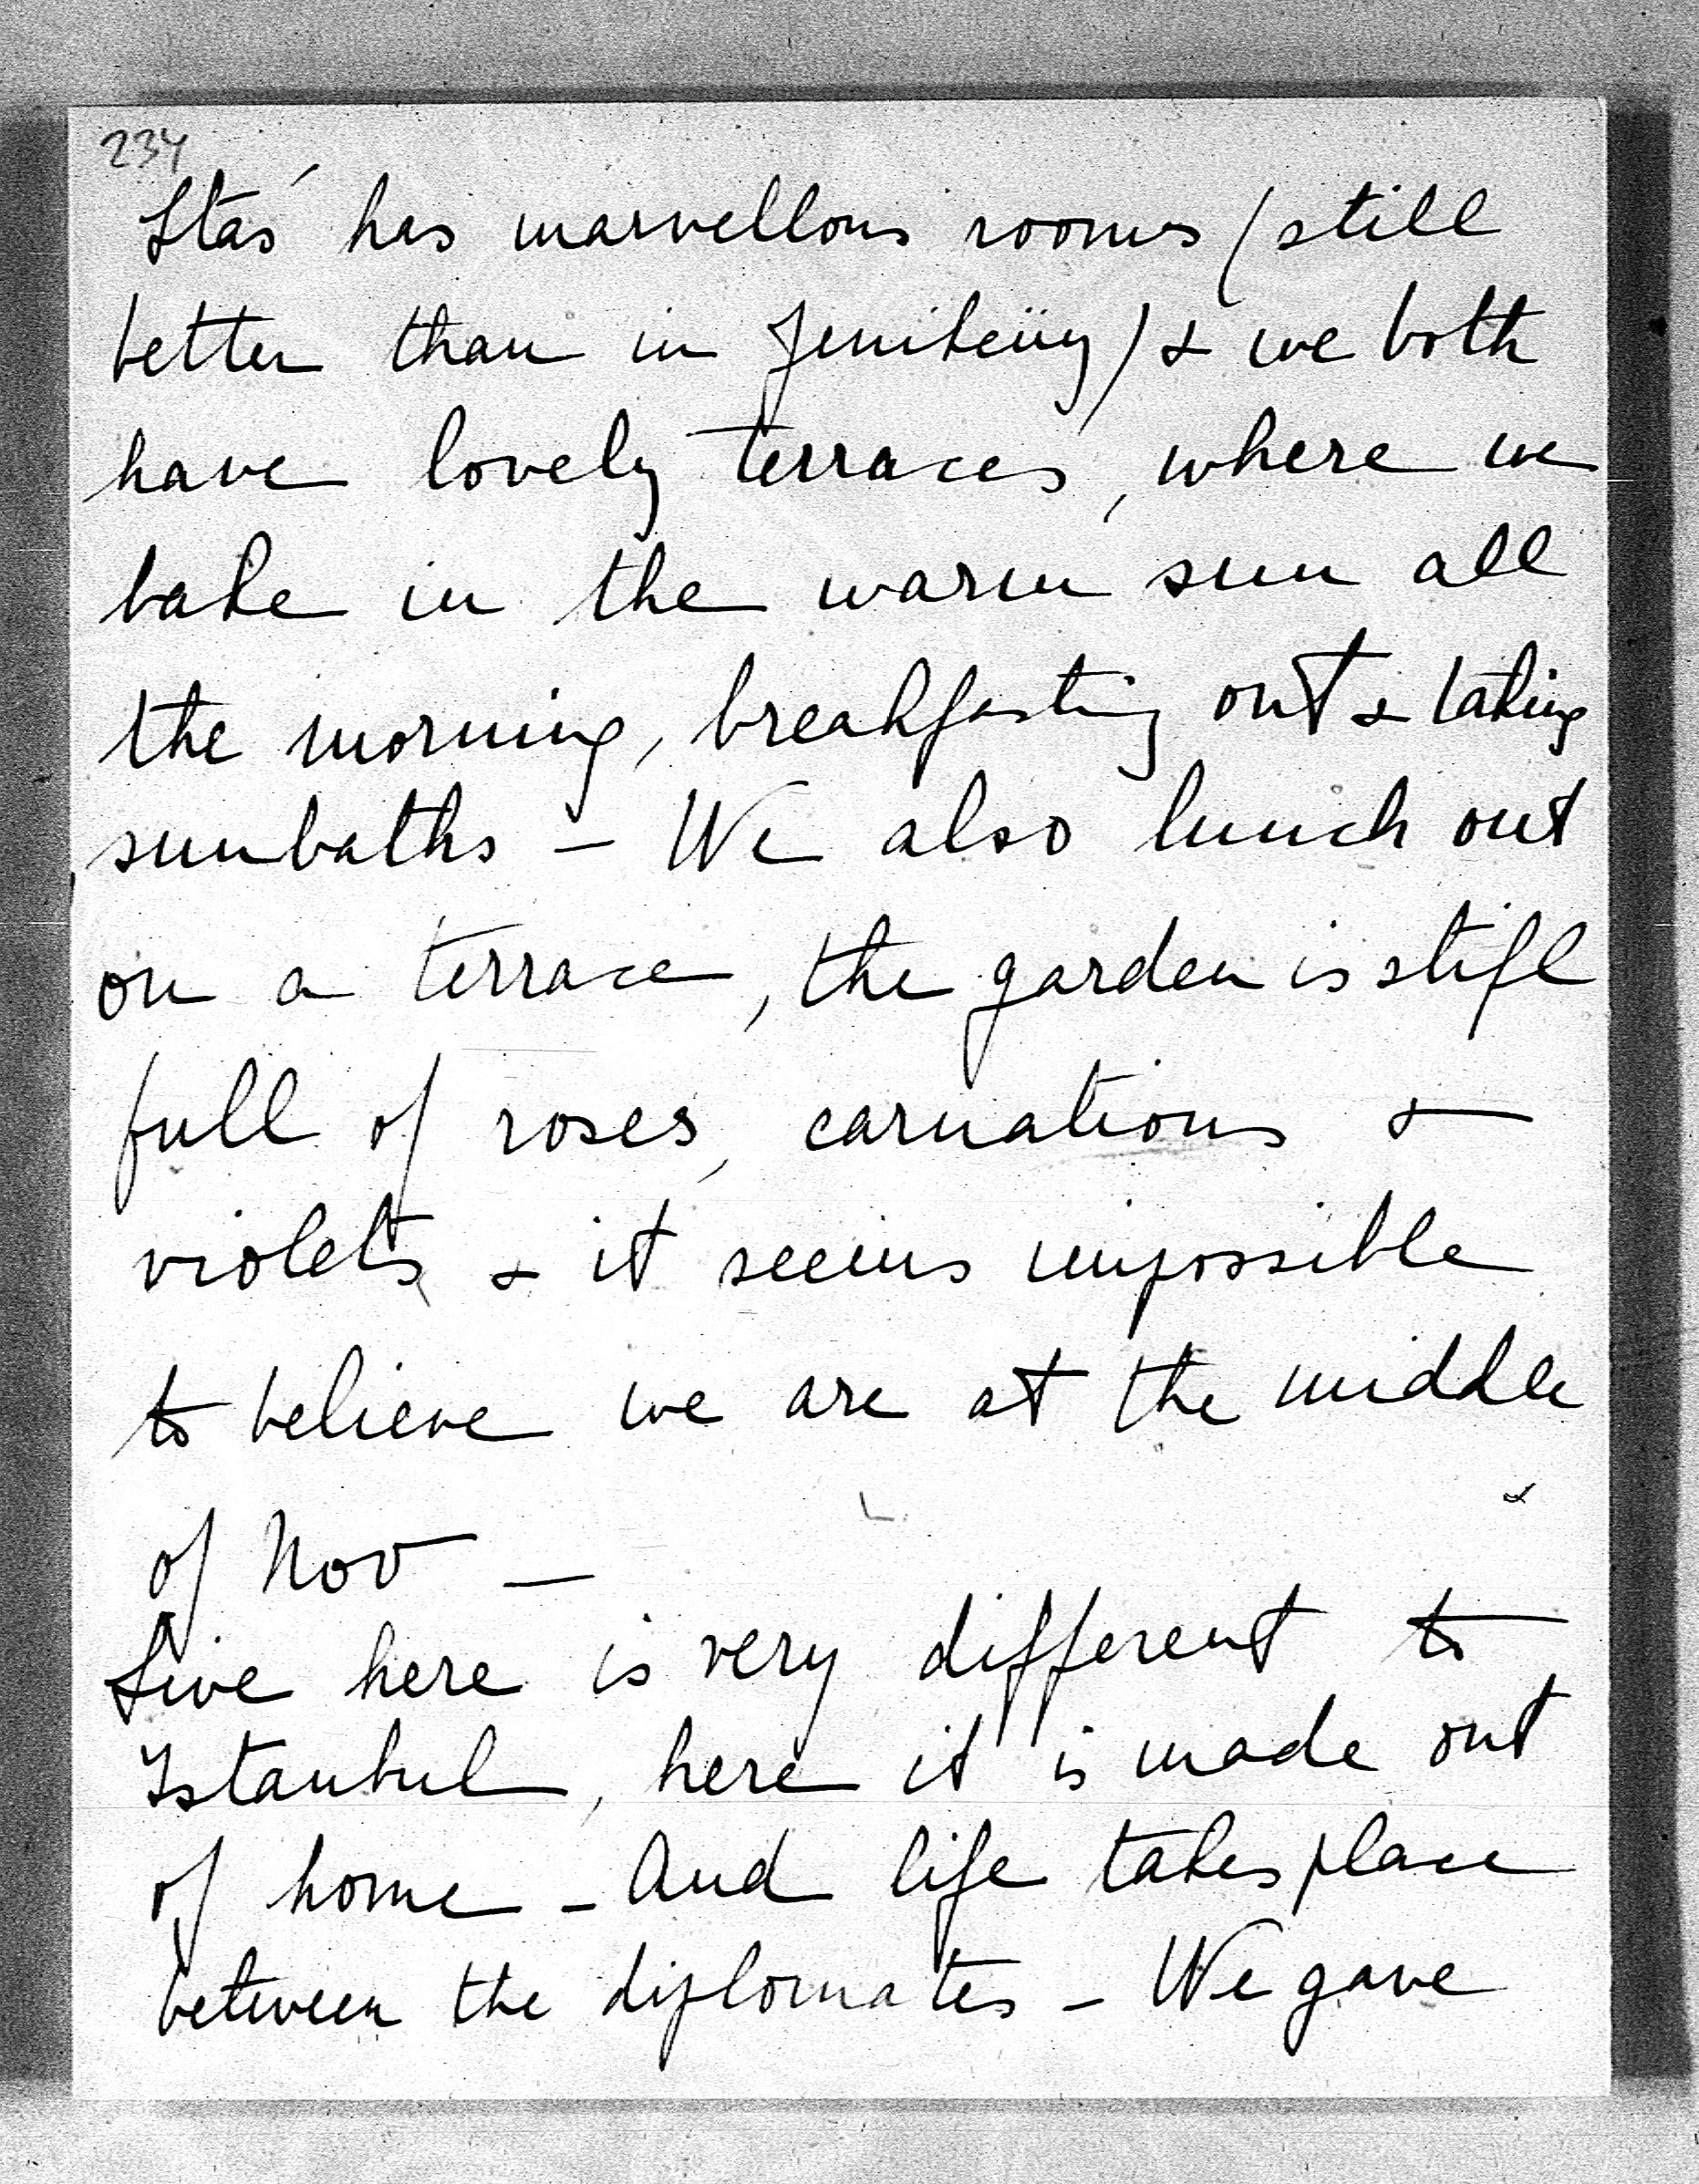 234
Staś has marvellous rooms (still
better than in Jenikeüy) & we both
have lovely terraces, where we
bake in the warm sun all
the morning, breakfasting out & taking
sunbaths – We also lunch out
on a terrace, the garden is still
full of roses, carnations &
violets & it seems impossible
to believe we are at the middle
of Nov –
Live here is very different to
Istanbul, here it is made out
of home – And life takes place
between the diplomates – We gave